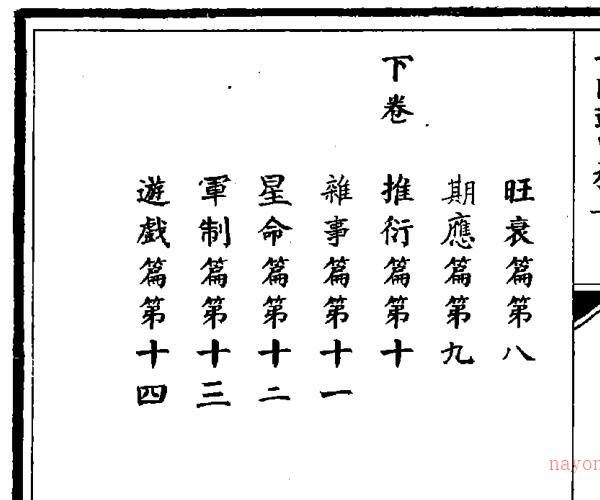 旺衰篇第八
期應篇第九
下卷 推衍篇第十
雜事篇第十一
星命篇第十二
軍制篇第十三
遊戲篇第十四
nayon